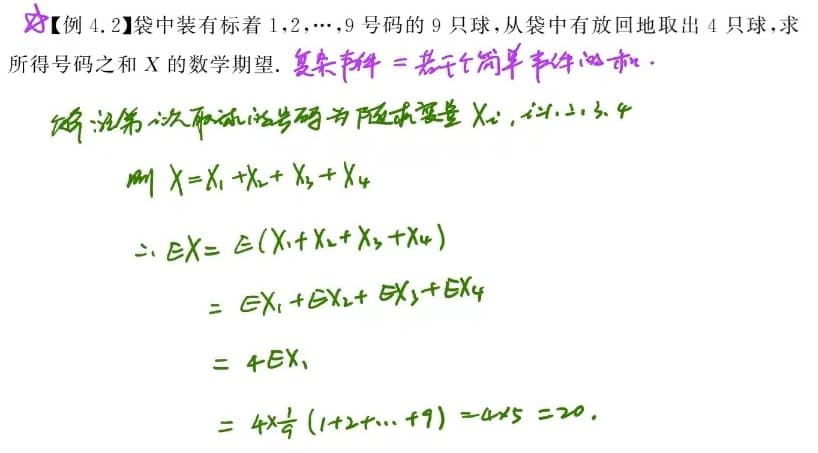 【例 4.2】袋中装有标着 1,2,…,9 号码的 9 只球,从袋中有放回地取出 4 只球,求
所得号码之和 X 的数学期望. 复杂事件 = 若干个简单事件的和.
解:设第i次取球的号码为随机变量 Xi, i=1.2.3.4
则 X=X₁+X₂+X₃+X₄
∴ EX= E(X₁+X₂+X₃+X₄)
= EX₁+EX₂+EX₃+EX₄
= 4EX₁
= 4×1/9 (1+2+…+9) =4×5 =20.